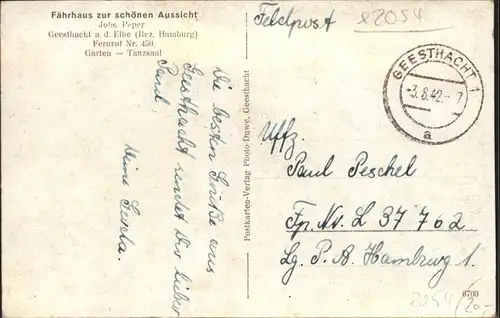 Fährhaus zur schönen Aussicht
Johs. Peper
Geesthacht a. d. Elbe (Bez. Hamburg)
Fernruf Nr. 450
Garten — Tanzsaal
Die besten Grüße aus
Geesthacht sendet Dir lieber
Paul
Deine Gerta.
Postkarten-Verlag Photo-Duwe, Geesthacht
Feldpost
x2054
GEESTHACHT 1
-7.8.42.-7
a
Uffz
Paul Peschel
Fp. Nr. L 37762
Lg. P. A. Hamburg 1.
2054/20-
6700